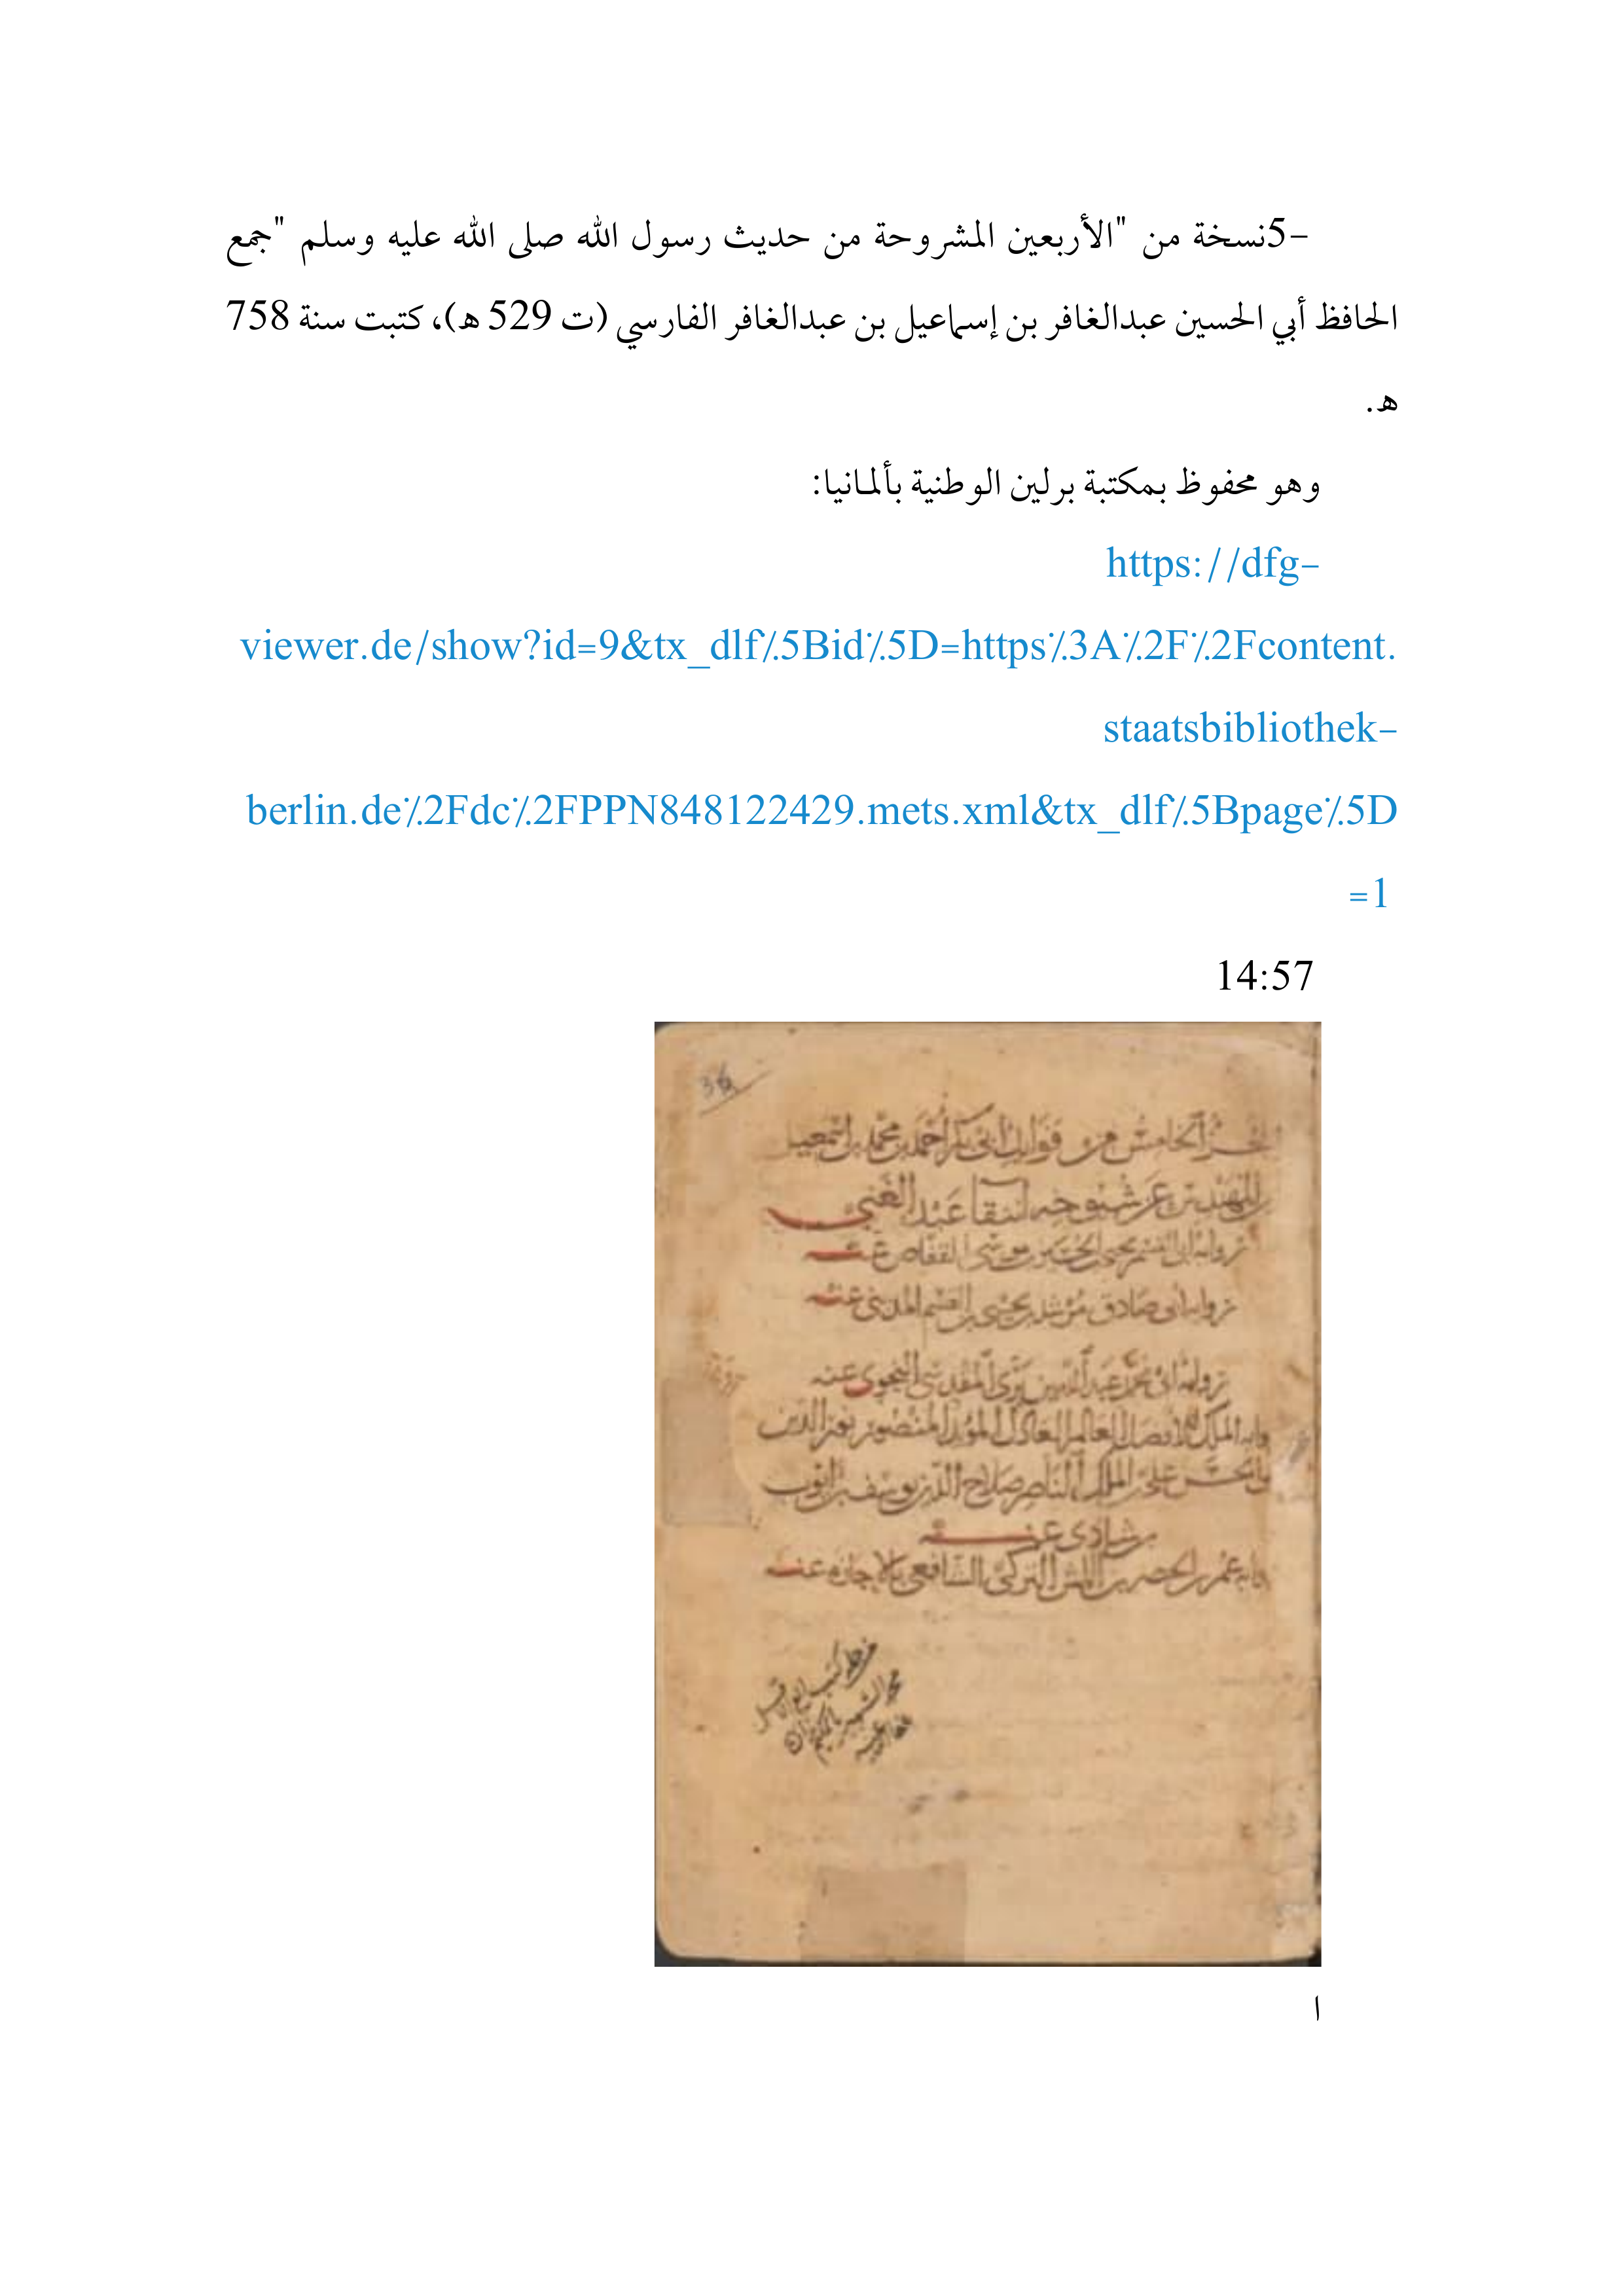 -5نسخة من "الأربعين المشروحة من حديث رسول الله صلى الله عليه وسلم "جمع
الحافظ أبي الحسين عبدالغافر بن إسماعيل بن عبدالغافر الفارسي (ت 529 ه)، كتبت سنة 758
ه.
وهو محفوظ بمكتبة برلين الوطنية بألمانيا:
https://dfg-
viewer.de/show?id=9&tx_dlf٪5Bid٪5D=https٪3A٪2F٪2Fcontent.
staatsbibliothek-
berlin.de٪2Fdc٪2FPPN848122429.mets.xml&tx_dlf٪5Bpage٪5D
=1
14:57
الخامس من فوائد أبي بكر أحمد بن محمد بن اسمعيل
المهندس عن شيوخه انتقا عبد الغني
رواية أبي القسم يحيى الحسين بن موسى القفاص عنه
رواية أبي صادق مرشد بن يحيى بن القسم المديني عنه
رواية أبي محمد عبد الله بن بري المقدسي النحوي عنه
الملك الأفضل العالم العادل المؤيد المنصور نور الدين
علي بن الملك الناصر صلاح الدين يوسف بن أيوب
بن شادي عنه
عمر بن الخضر بن اللمش التركي الشافعي بالإجازة عنه
ا